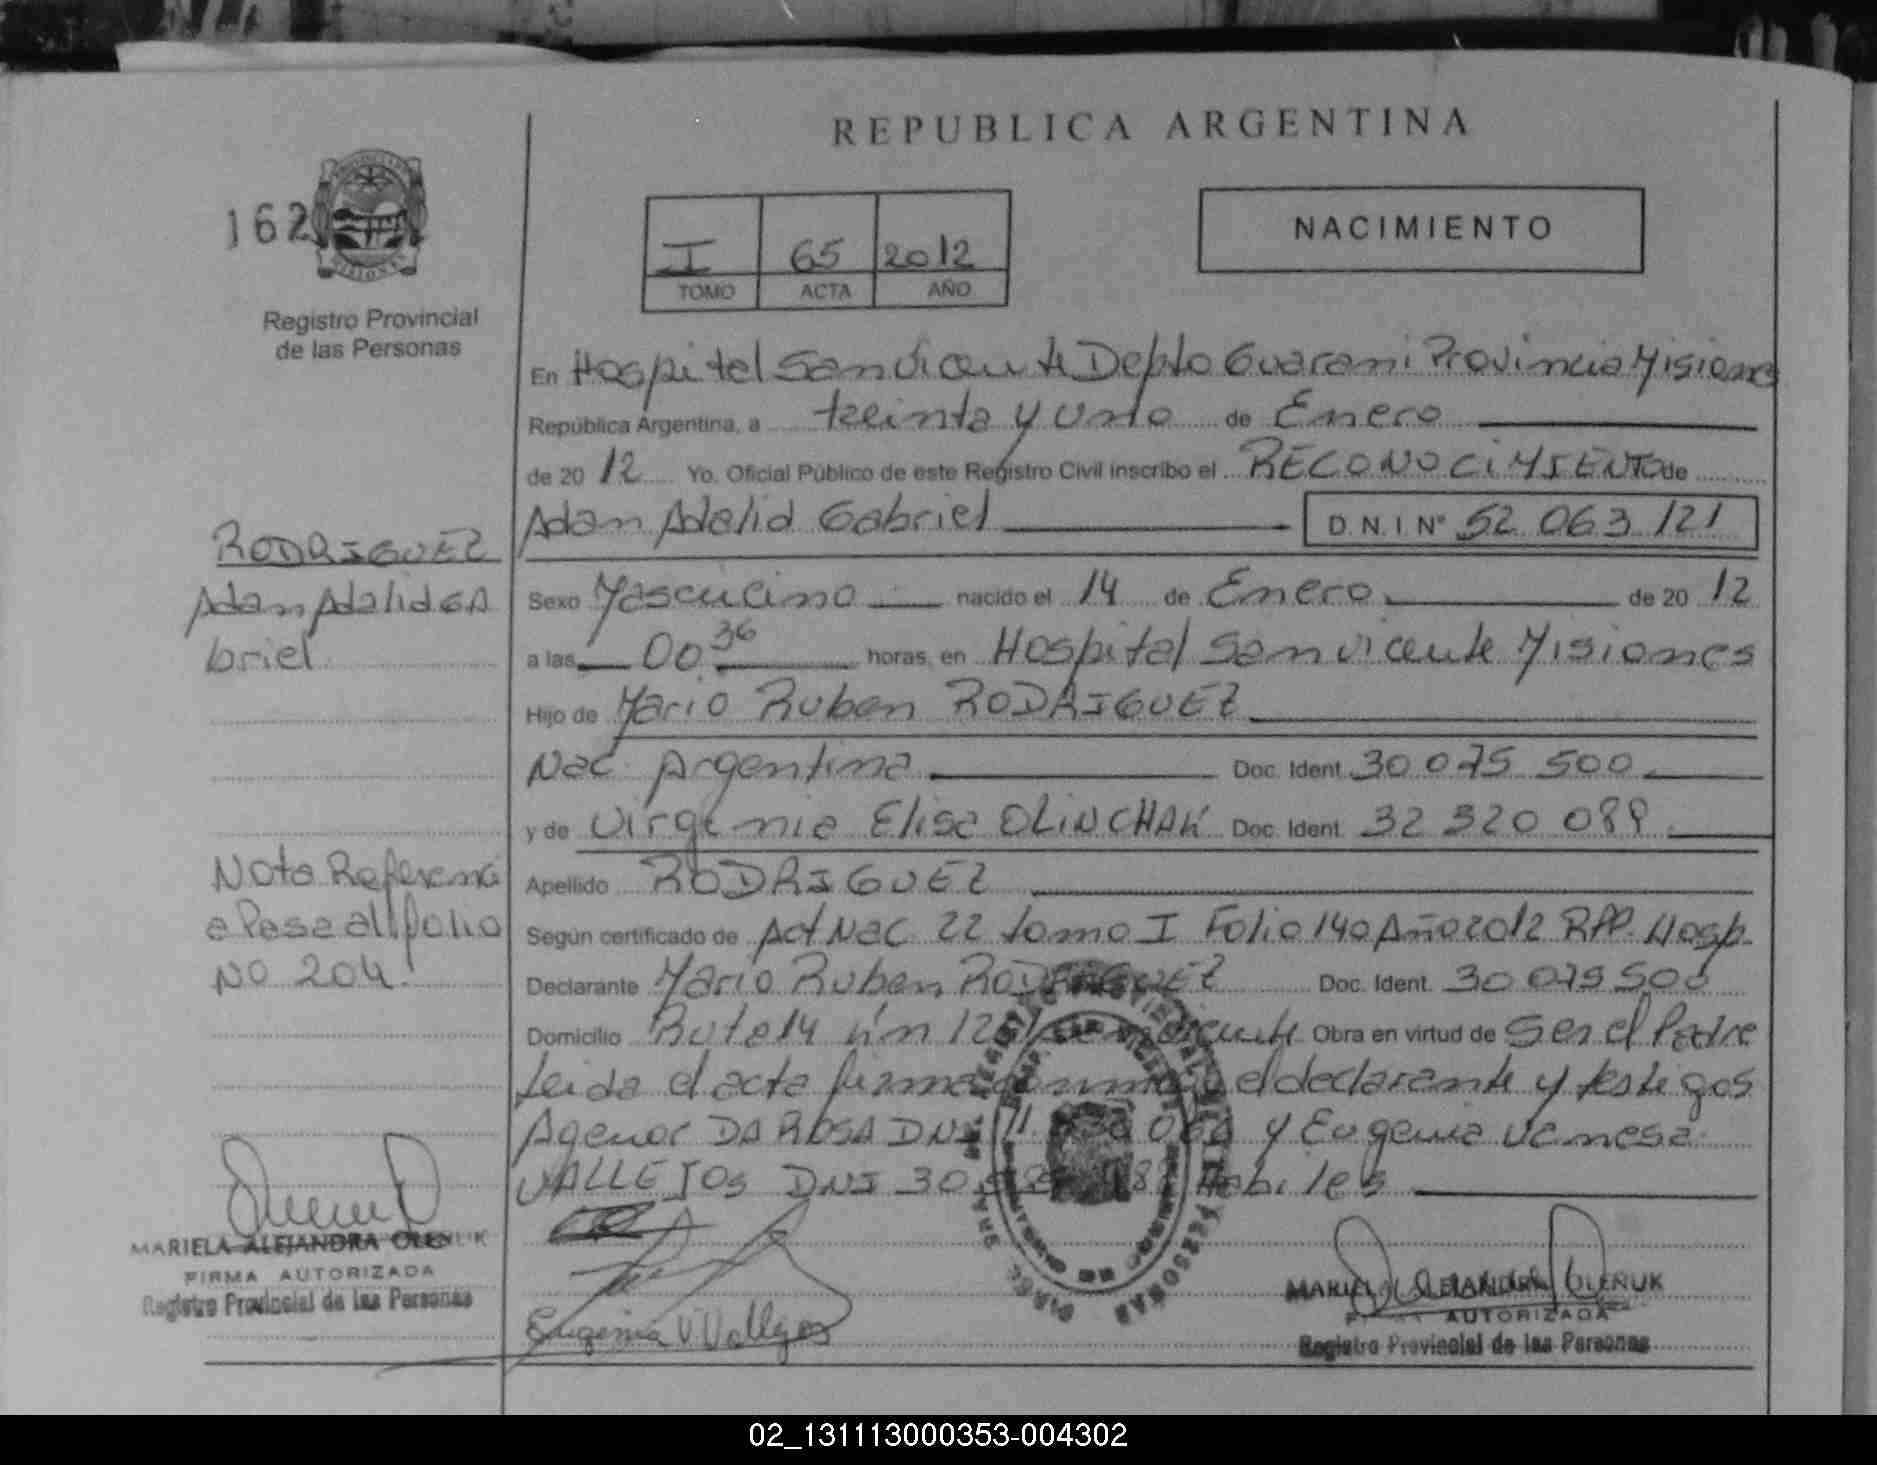 REPUBLICA ARGENTINA
162
NACIMIENTO
I 65 2012
TOMO ACTA AÑO
Registro Provincial
de las Personas
En Hospital San Vicente Depto Guarani Provincia Misiones
República Argentina, a treinta y uno de Enero
de 20 12 Yo, Oficial Público de este Registro Civil inscribo el RECONOCIMIENTO de
Adam Adalid Gabriel D.N.I Nº 52 063 121
RODRIGUEZ
Adam Adalid GA
briel
Sexo Masculino nacido el 14 de Enero de 20 12
a las 00.36 horas, en Hospital San Vicente Misiones
Hijo de Mario Ruben RODRIGUEZ
Nac. Argentina Doc. Ident. 30 075 500
y de Virginia Elisa OLINCHAK Doc. Ident. 32 320 089
Apellido RODRIGUEZ
Nota Referencia
a Pase al folio
NO 204.
Según certificado de Act Nac. 22 tomo I Folio 140 Año 2012 RPP. Hosp.
Declarante Mario Ruben RODRIGUEZ Doc. Ident. 30 075 500
Domicilio Ruta 14 Km Vicente Obra en virtud de Ser el Padre
Leida el acta firma conmigo el declarante y testigos
Agenor DA ROSA DNI y Eugenia Vanesa
VALLEJOS DNI 30 Habiles
Eugenia V Vallejos
MARIELA ALEJANDRA OLENUK
FIRMA AUTORIZADA
Registro Provincial de las Personas
MARIELA ALEJANDRA OLENUK
FIRMA AUTORIZADA
Registro Provincial de las Personas
02_131113000353-004302